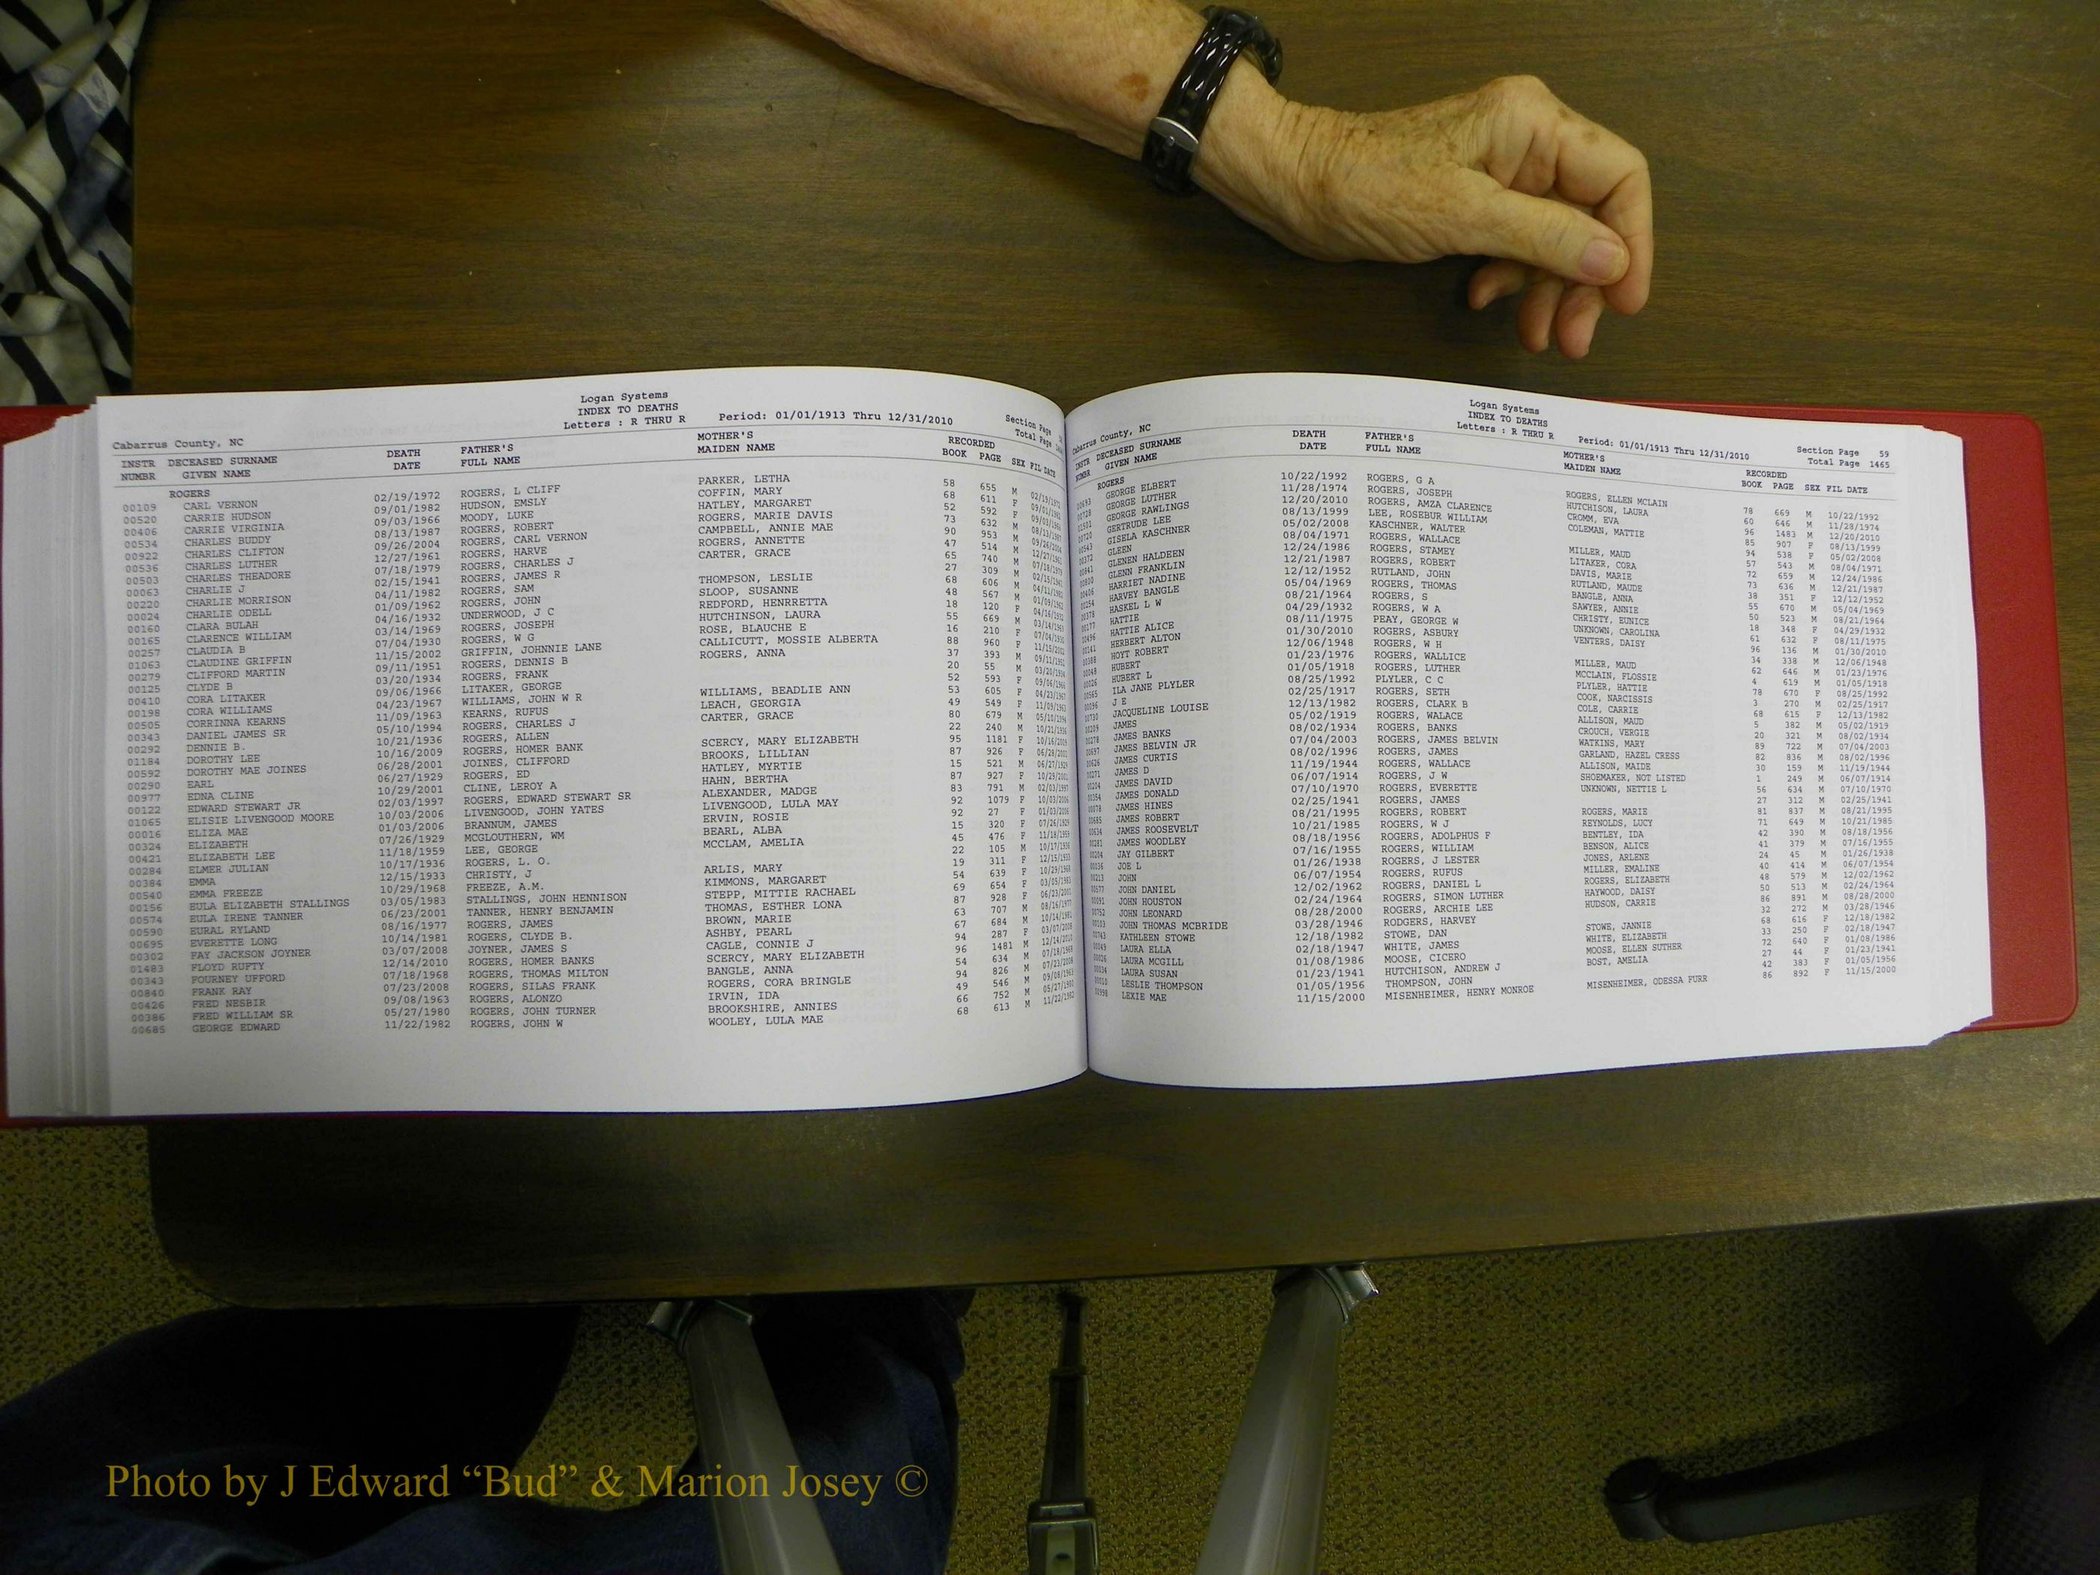 Logan Systems
INDEX TO DEATHS
Cabarrus County, NC Letters : R THRU R Period: 01/01/1913 Thru 12/31/2010 Section Page
Total Page
INSTR DECEASED SURNAME DEATH FATHER'S MOTHER'S RECORDED
NUMBR GIVEN NAME DATE FULL NAME MAIDEN NAME BOOK PAGE SEX FIL DATE
ROGERS
00109 CARL VERNON 02/19/1972 ROGERS, L CLIFF PARKER, LETHA 58 655 M 02/19/1972
00520 CARRIE HUDSON 09/01/1982 HUDSON, EMSLY COFFIN, MARY 68 611 F 09/01/1982
00406 CARRIE VIRGINIA 09/03/1966 MOODY, LUKE HATLEY, MARGARET 52 592 F 09/03/1966
00534 CHARLES BUDDY 08/13/1987 ROGERS, ROBERT ROGERS, MARIE DAVIS 73 632 M 08/13/1987
00922 CHARLES CLIFTON 09/26/2004 ROGERS, CARL VERNON CAMPBELL, ANNIE MAE 90 953 M 09/26/2004
00536 CHARLES LUTHER 12/27/1961 ROGERS, HARVE ROGERS, ANNETTE 47 514 M 12/27/1961
00503 CHARLES THEADORE 07/18/1979 ROGERS, CHARLES J CARTER, GRACE 65 740 M 07/18/1979
00063 CHARLIE J 02/15/1941 ROGERS, JAMES R 27 309 M 02/15/1941
00220 CHARLIE MORRISON 04/11/1982 ROGERS, SAM THOMPSON, LESLIE 68 606 M 04/11/1982
00024 CHARLIE ODELL 01/09/1962 ROGERS, JOHN SLOOP, SUSANNE 48 567 M 01/09/1962
00160 CLARA BULAH 04/16/1932 UNDERWOOD, J C REDFORD, HENRRETTA 18 120 F 04/16/1932
00165 CLARENCE WILLIAM 03/14/1969 ROGERS, JOSEPH HUTCHINSON, LAURA 55 669 M 03/14/1969
00257 CLAUDIA B 07/04/1930 ROGERS, W G ROSE, BLAUCHE E 16 210 F 07/04/1930
01063 CLAUDINE GRIFFIN 11/15/2002 GRIFFIN, JOHNNIE LANE CALLICUTT, MOSSIE ALBERTA 88 960 F 11/15/2002
00279 CLIFFORD MARTIN 09/11/1951 ROGERS, DENNIS B ROGERS, ANNA 37 393 M 09/11/1951
00125 CLYDE B 03/20/1934 ROGERS, FRANK 20 55 M 03/20/1934
00410 CORA LITAKER 09/06/1966 LITAKER, GEORGE 52 593 F 09/06/1966
00198 CORA WILLIAMS 04/23/1967 WILLIAMS, JOHN W R WILLIAMS, BEADLIE ANN 53 605 F 04/23/1967
00505 CORRINNA KEARNS 11/09/1963 KEARNS, RUFUS LEACH, GEORGIA 49 549 F 11/09/1963
00343 DANIEL JAMES SR 05/10/1994 ROGERS, CHARLES J CARTER, GRACE 80 679 M 05/10/1994
00292 DENNIE B. 10/21/1936 ROGERS, ALLEN 22 240 M 10/21/1936
01184 DOROTHY LEE 10/16/2009 ROGERS, HOMER BANK SCERCY, MARY ELIZABETH 95 1181 F 10/16/2009
00592 DOROTHY MAE JOINES 06/28/2001 JOINES, CLIFFORD BROOKS, LILLIAN 87 926 F 06/28/2001
00290 EARL 06/27/1929 ROGERS, ED HATLEY, MYRTIE 15 521 M 06/27/1929
00977 EDNA CLINE 10/29/2001 CLINE, LEROY A HAHN, BERTHA 87 927 F 10/29/2001
00122 EDWARD STEWART JR 02/03/1997 ROGERS, EDWARD STEWART SR ALEXANDER, MADGE 83 791 M 02/03/1997
01065 ELISIE LIVENGOOD MOORE 10/03/2006 LIVENGOOD, JOHN YATES LIVENGOOD, LULA MAY 92 1079 F 10/03/2006
00016 ELIZA MAE 01/03/2006 BRANNUM, JAMES ERVIN, ROSIE 92 27 F 01/03/2006
00324 ELIZABETH 07/26/1929 MCGLOUTHERN, WM BEARL, ALBA 15 320 F 07/26/1929
00421 ELIZABETH LEE 11/18/1959 LEE, GEORGE MCCLAM, AMELIA 45 476 F 11/18/1959
00284 ELMER JULIAN 10/17/1936 ROGERS, L. O. 22 105 M 10/17/1936
00384 EMMA 12/15/1933 CHRISTY, J ARLIS, MARY 19 311 F 12/15/1933
00540 EMMA FREEZE 10/29/1968 FREEZE, A.M. KIMMONS, MARGARET 54 639 F 10/29/1968
00156 EULA ELIZABETH STALLINGS 03/05/1983 STALLINGS, JOHN HENNISON STEPP, MITTIE RACHAEL 69 654 F 03/05/1983
00574 EULA IRENE TANNER 06/23/2001 TANNER, HENRY BENJAMIN THOMAS, ESTHER LONA 87 928 F 06/23/2001
00590 EURAL RYLAND 08/16/1977 ROGERS, JAMES BROWN, MARIE 63 707 M 08/16/1977
00695 EVERETTE LONG 10/14/1981 ROGERS, CLYDE B. ASHBY, PEARL 67 684 M 10/14/1981
00302 FAY JACKSON JOYNER 03/07/2008 JOYNER, JAMES S CAGLE, CONNIE J 94 287 F 03/07/2008
01483 FLOYD RUFTY 12/14/2010 ROGERS, HOMER BANKS SCERCY, MARY ELIZABETH 96 1481 M 12/14/2010
00343 FOURNEY UFFORD 07/18/1968 ROGERS, THOMAS MILTON BANGLE, ANNA 54 634 M 07/18/1968
00840 FRANK RAY 07/23/2008 ROGERS, SILAS FRANK ROGERS, CORA BRINGLE 94 826 M 07/23/2008
00426 FRED NESBIR 09/08/1963 ROGERS, ALONZO IRVIN, IDA 49 546 M 09/08/1963
00386 FRED WILLIAM SR 05/27/1980 ROGERS, JOHN TURNER BROOKSHIRE, ANNIES 66 752 M 05/27/1980
00685 GEORGE EDWARD 11/22/1982 ROGERS, JOHN W WOOLEY, LULA MAE 68 613 M 11/22/1982
Logan Systems
INDEX TO DEATHS
Cabarrus County, NC Letters : R THRU R Period: 01/01/1913 Thru 12/31/2010 Section Page 59
Total Page 1465
INSTR DECEASED SURNAME DEATH FATHER'S MOTHER'S RECORDED
NUMBR GIVEN NAME DATE FULL NAME MAIDEN NAME BOOK PAGE SEX FIL DATE
ROGERS
00693 GEORGE ELBERT 10/22/1992 ROGERS, G A ROGERS, ELLEN MCLAIN 78 669 M 10/22/1992
00728 GEORGE LUTHER 11/28/1974 ROGERS, JOSEPH HUTCHISON, LAURA 60 646 M 11/28/1974
01501 GEORGE RAWLINGS 12/20/2010 ROGERS, AMZA CLARENCE CROMM, EVA 96 1483 M 12/20/2010
00720 GERTRUDE LEE 08/13/1999 LEE, ROSEBUR WILLIAM COLEMAN, MATTIE 85 907 F 08/13/1999
00543 GISELA KASCHNER 05/02/2008 KASCHNER, WALTER 94 538 F 05/02/2008
00372 GLEEN 08/04/1971 ROGERS, WALLACE MILLER, MAUD 57 543 M 08/04/1971
00841 GLENEN HALDEEN 12/24/1986 ROGERS, STAMEY LITAKER, CORA 72 659 M 12/24/1986
00800 GLENN FRANKLIN 12/21/1987 ROGERS, ROBERT DAVIS, MARIE 73 636 M 12/21/1987
00406 HARRIET NADINE 12/12/1952 RUTLAND, JOHN RUTLAND, MAUDE 38 351 F 12/12/1952
00254 HARVEY BANGLE 05/04/1969 ROGERS, THOMAS BANGLE, ANNA 55 670 M 05/04/1969
00378 HASKEL L W 08/21/1964 ROGERS, S SAWYER, ANNIE 50 523 M 08/21/1964
00177 HATTIE 04/29/1932 ROGERS, W A CHRISTY, EUNICE 18 348 F 04/29/1932
00496 HATTIE ALICE 08/11/1975 PEAY, GEORGE W UNKNOWN, CAROLINA 61 632 F 08/11/1975
00141 HERBERT ALTON 01/30/2010 ROGERS, ASBURY VENTERS, DAISY 96 136 M 01/30/2010
00388 HOYT ROBERT 12/06/1948 ROGERS, W H 34 338 M 12/06/1948
00049 HUBERT 01/23/1976 ROGERS, WALLICE MILLER, MAUD 62 646 M 01/23/1976
00026 HUBERT L 01/05/1918 ROGERS, LUTHER MCCLAIN, FLOSSIE 4 619 M 01/05/1918
00565 ILA JANE PLYLER 08/25/1992 PLYLER, C C PLYLER, HATTIE 78 670 F 08/25/1992
00096 J E 02/25/1917 ROGERS, SETH COOK, NARCISSIS 3 270 M 02/25/1917
00730 JACQUELINE LOUISE 12/13/1982 ROGERS, CLARK B COLE, CARRIE 68 615 F 12/13/1982
00209 JAMES 05/02/1919 ROGERS, WALACE ALLISON, MAUD 5 382 M 05/02/1919
00278 JAMES BANKS 08/02/1934 ROGERS, BANKS CROUCH, VERGIE 20 321 M 08/02/1934
00697 JAMES BELVIN JR 07/04/2003 ROGERS, JAMES BELVIN WATKINS, MARY 89 722 M 07/04/2003
00626 JAMES CURTIS 08/02/1996 ROGERS, JAMES GARLAND, HAZEL CRESS 82 836 M 08/02/1996
00271 JAMES D 11/19/1944 ROGERS, WALLACE ALLISON, MAIDE 30 159 M 11/19/1944
00204 JAMES DAVID 06/07/1914 ROGERS, J W SHOEMAKER, NOT LISTED 1 249 M 06/07/1914
00354 JAMES DONALD 07/10/1970 ROGERS, EVERETTE UNKNOWN, NETTIE L 56 634 M 07/10/1970
00078 JAMES HINES 02/25/1941 ROGERS, JAMES 27 312 M 02/25/1941
00685 JAMES ROBERT 08/21/1995 ROGERS, ROBERT ROGERS, MARIE 81 837 M 08/21/1995
00634 JAMES ROOSEVELT 10/21/1985 ROGERS, W J REYNOLDS, LUCY 71 649 M 10/21/1985
00281 JAMES WOODLEY 08/18/1956 ROGERS, ADOLPHUS F BENTLEY, IDA 42 390 M 08/18/1956
00204 JAY GILBERT 07/16/1955 ROGERS, WILLIAM BENSON, ALICE 41 379 M 07/16/1955
00036 JOE L 01/26/1938 ROGERS, J LESTER JONES, ARLENE 24 45 M 01/26/1938
00213 JOHN 06/07/1954 ROGERS, RUFUS MILLER, EMALINE 40 414 M 06/07/1954
00577 JOHN DANIEL 12/02/1962 ROGERS, DANIEL L ROGERS, ELIZABETH 48 579 M 12/02/1962
00091 JOHN HOUSTON 02/24/1964 ROGERS, SIMON LUTHER HAYWOOD, DAISY 50 513 M 02/24/1964
00752 JOHN LEONARD 08/28/2000 ROGERS, ARCHIE LEE HUDSON, CARRIE 86 891 M 08/28/2000
00103 JOHN THOMAS MCBRIDE 03/28/1946 RODGERS, HARVEY 32 272 M 03/28/1946
00743 KATHLEEN STOWE 12/18/1982 STOWE, DAN STOWE, JANNIE 68 616 F 12/18/1982
00049 LAURA ELLA 02/18/1947 WHITE, JAMES WHITE, ELIZABETH 33 250 F 02/18/1947
00026 LAURA MCGILL 01/08/1986 MOOSE, CICERO MOOSE, ELLEN SUTHER 72 640 F 01/08/1986
00034 LAURA SUSAN 01/23/1941 HUTCHISON, ANDREW J BOST, AMELIA 27 44 F 01/23/1941
00010 LESLIE THOMPSON 01/05/1956 THOMPSON, JOHN 42 383 F 01/05/1956
00998 LEXIE MAE 11/15/2000 MISENHEIMER, HENRY MONROE MISENHEIMER, ODESSA FURR 86 892 F 11/15/2000
Photo by J Edward “Bud” & Marion Josey ©